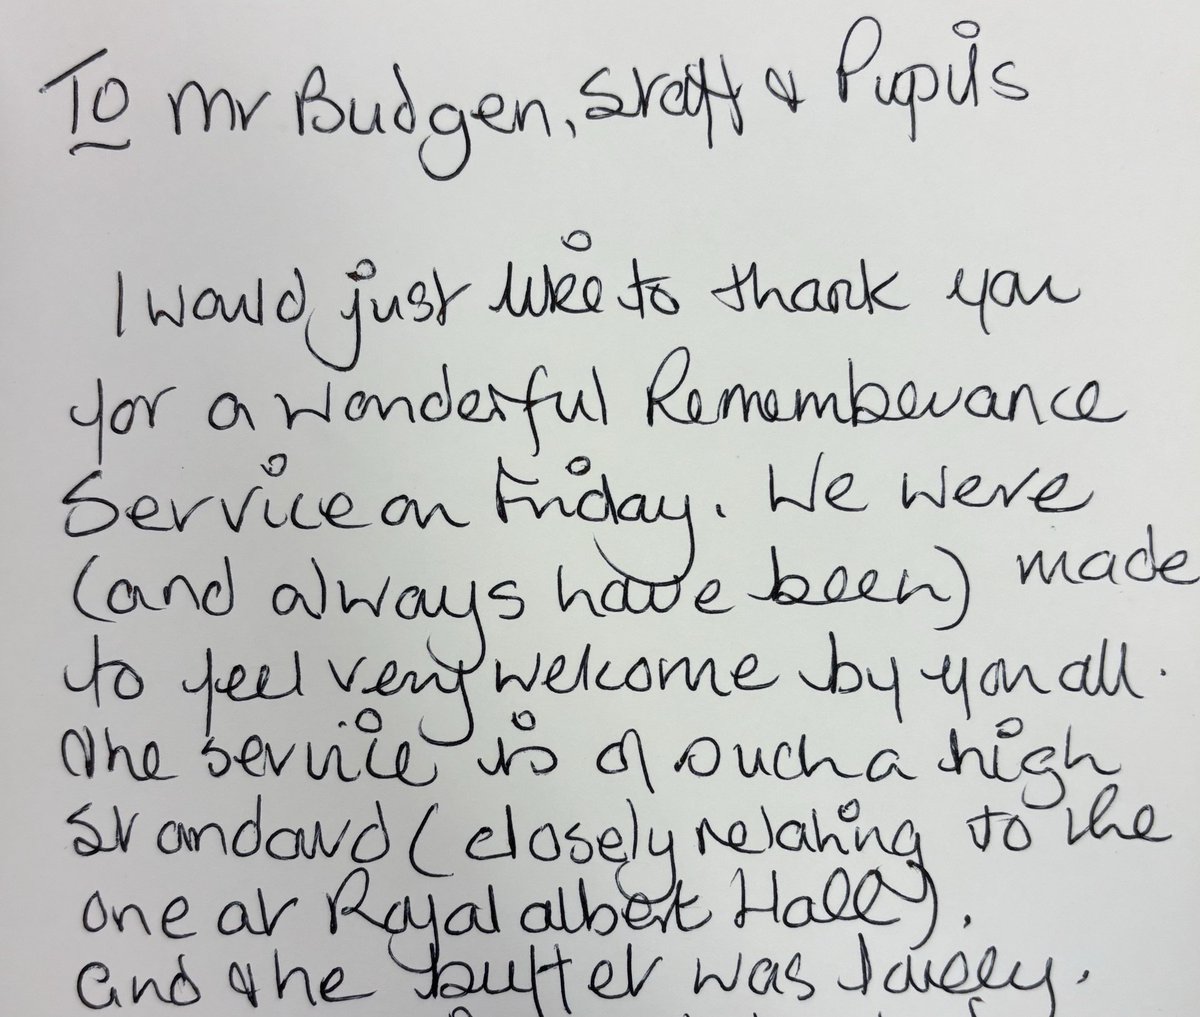 To Mr Budgen, Staff & Pupils
I would just like to thank you
for a wonderful Rememberance
Service on Friday. We were
(and always have been) made
to feel very welcome by you all.
The service is of such a high
standard (closely relating to the
one at Royal albert Hall).
and the buffet was lovely.